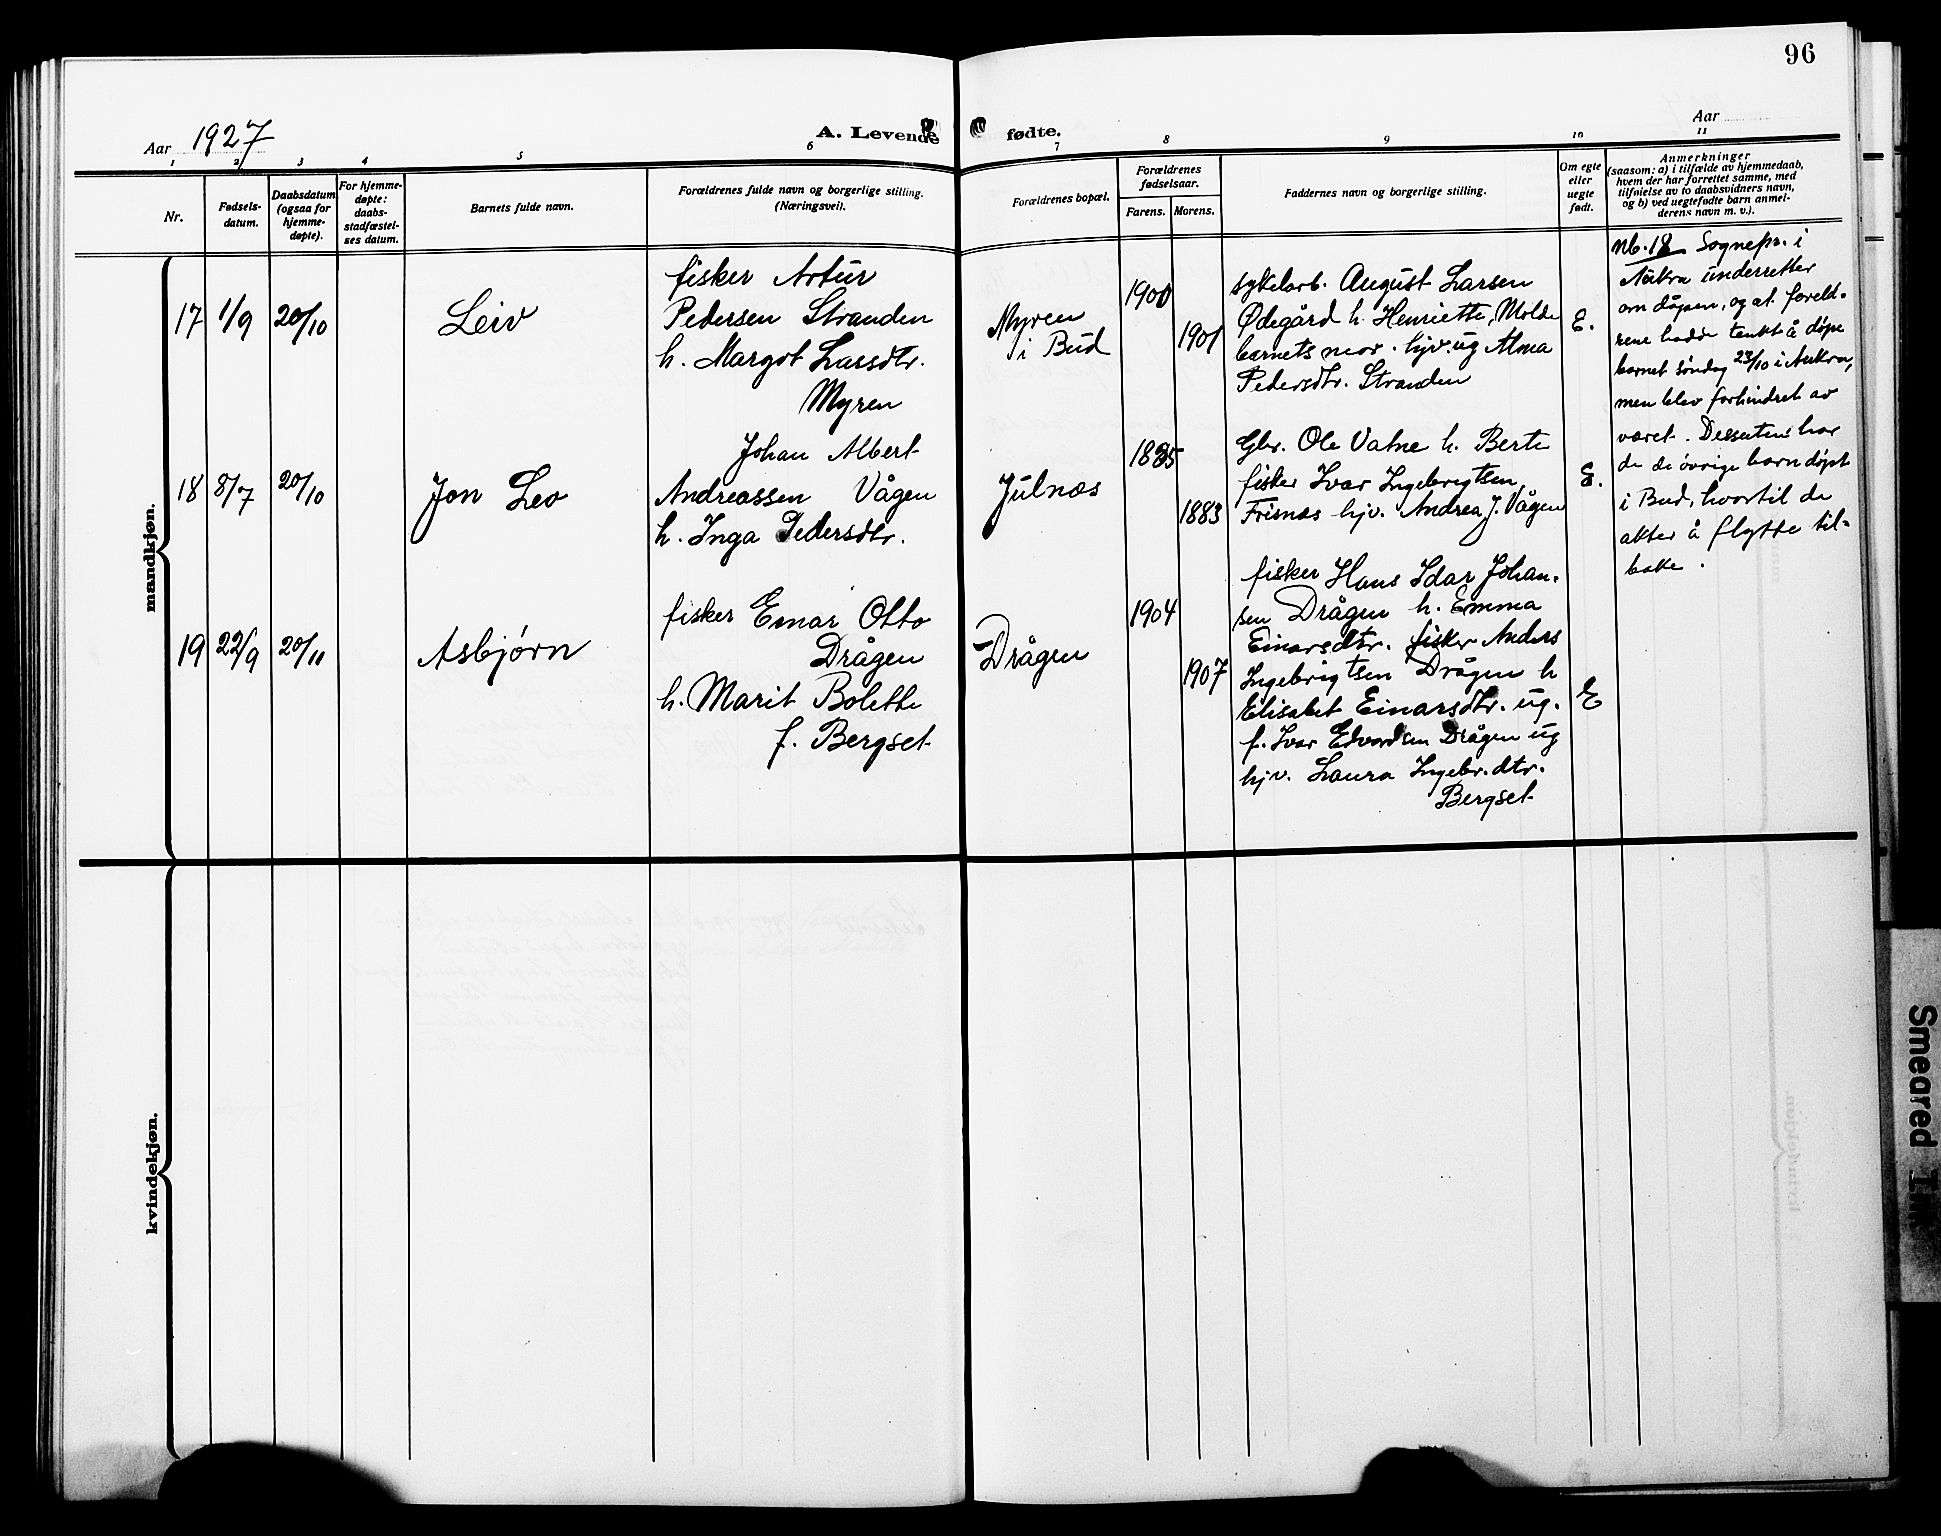 96
Aar 1927
A. Levende fødte.
Aar
1 2 3 4 5 6 7 8 9 10 11
Nr.
Fødsels-
datum.
Daabsdatum
(ogsaa for
hjemme-
døpte).
For hjemme-
døpte:
daabs-
stadfæstel-
ses datum.
Barnets fulde navn.
Forældrenes fulde navn og borgerlige stilling.
(Næringsvei).
Forældrenes bopæl.
Forældrenes
fødselsaar.
Farens. Morens.
Faddernes navn og borgerlige stilling.
Om egte
eller
uegte
født.
Anmerkninger
(saasom: a) i tilfælde av hjemmedaab,
hvem der har forrettet samme, med
tilføielse av to daabsvidners navn,
og b) ved uegtefødte barn anmel-
derens navn m. v.).
mandkjøn.
17 1/9 20/10 Leiv
fisker Artur
Pedersen Stranden
h. Margot Larsdtr.
Myren
Myren
i Bud
1900
1901
sykelarb. August Larsen
Ødegård h. Henriette, Molde
barnets mor. hjv. ug Alma
Pedersdtr. Stranden
E.
18 8/7 20/10 Jon Leo
Johan Albert
Andreassen Vågen
h. Inga Pedersdtr.
Julnæs
1885
1883
Gbr. Ole Vatne h. Berte
fisker Ivar Ingebrigtsen,
Frisnæs hjv. Andrea J. Vågen
E.
19 22/9 20/11 Asbjørn
fisker Einar Otto
Drågen
h. Marit Bolette
f. Bergset
Drågen
1904
1907
fisker Hans Idar Johan-
sen Drågen h. Emma
Einarsdtr. fisker Anders
Ingebrigtsen Drågen h
Elisabet Einarsdtr. ug.
f. Ivar Edvardsen Drågen ug
hjv. Laura Ingebr.dtr.
Bergset
E
Nb. 18 Sognepr. i
Aukra underretter
om dåpen, og at foreld-
rene hadde tenkt å døpe
barnet søndag 23/10 i Aukra,
men blev forhindret av
været. Dessuten har
de de øvrige barn døpt
i Bud, hvortil de
akter å flytte til-
bake.
kvindekjøn.
Smeared